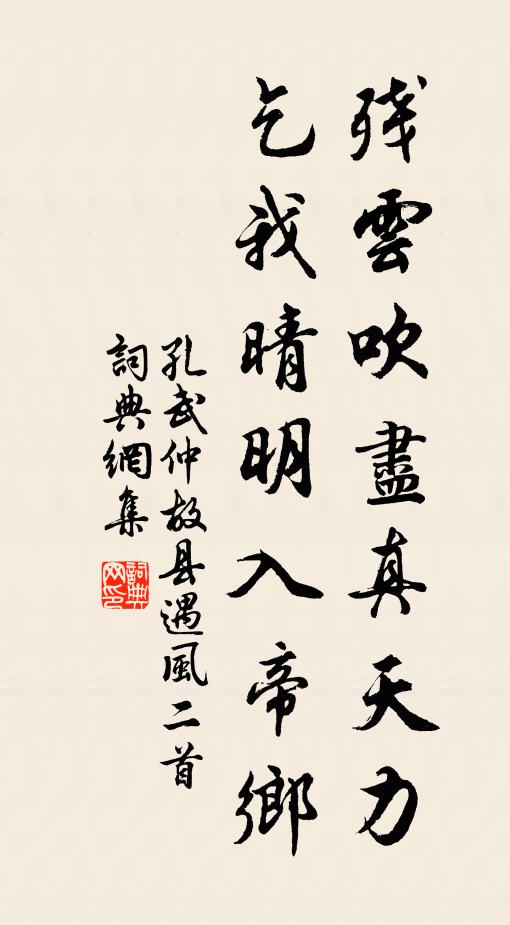 残雲吹盡真天力
乞我晴明入帝鄉
孔武仲故县遇風二首
詞典網集
詞典网印